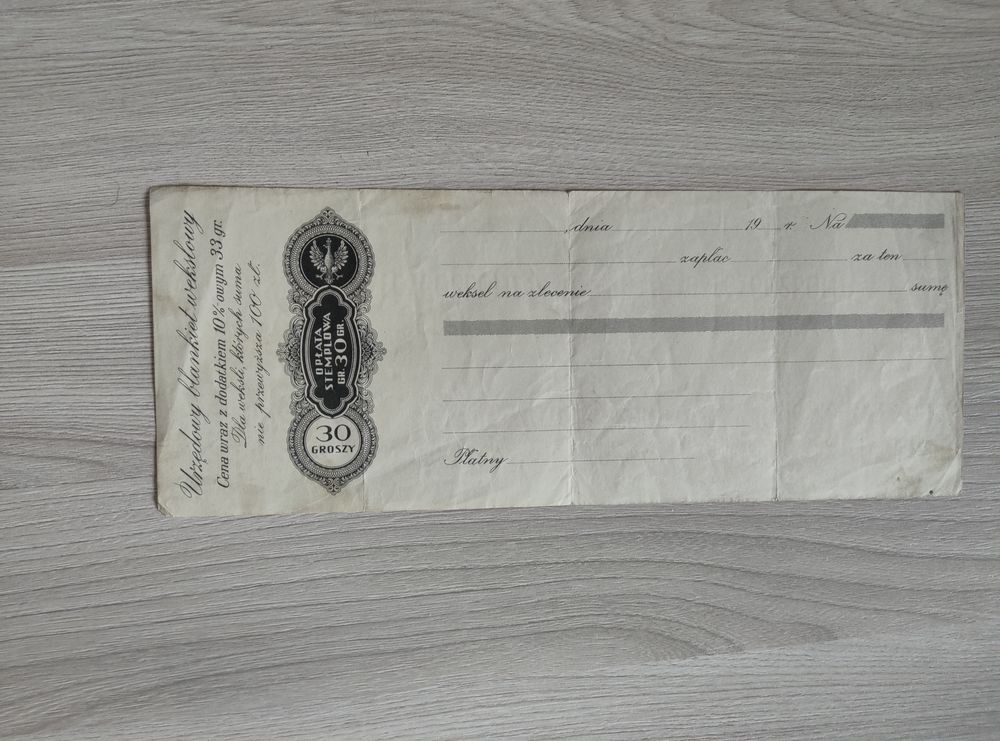 Urzędowy blankiet wekslowy
Cena wraz z dodatkiem 10% owym 33 gr.
Dla weksli, których suma
nie przewyższa 100 zł.
OPŁATA
STEMPLOWA
GR. 30 GR.
30
GROSZY
, dnia 19 r. Na
zapłac za ten
weksel na zlecenie sumę
Płatny